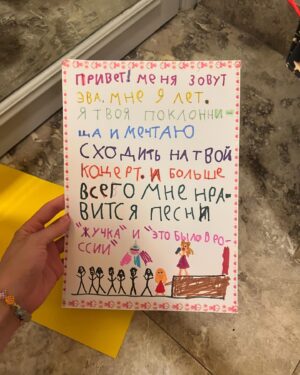 ПРИВЕТ! МЕНЯ ЗОВУТ
ЭВА. МНЕ 9 ЛЕТ.
Я ТВОЯ ПОКЛОННИ-
ЦА И МЕЧТАЮ
СХОДИТЬ НА ТВОЙ
КОЦЕРТ. И БОЛЬШЕ
ВСЕГО МНЕ НРА-
ВИТСЯ ПЕСНИ
"ЖУЧКА" И "ЭТО БЫЛО В РО-
ССИИ"